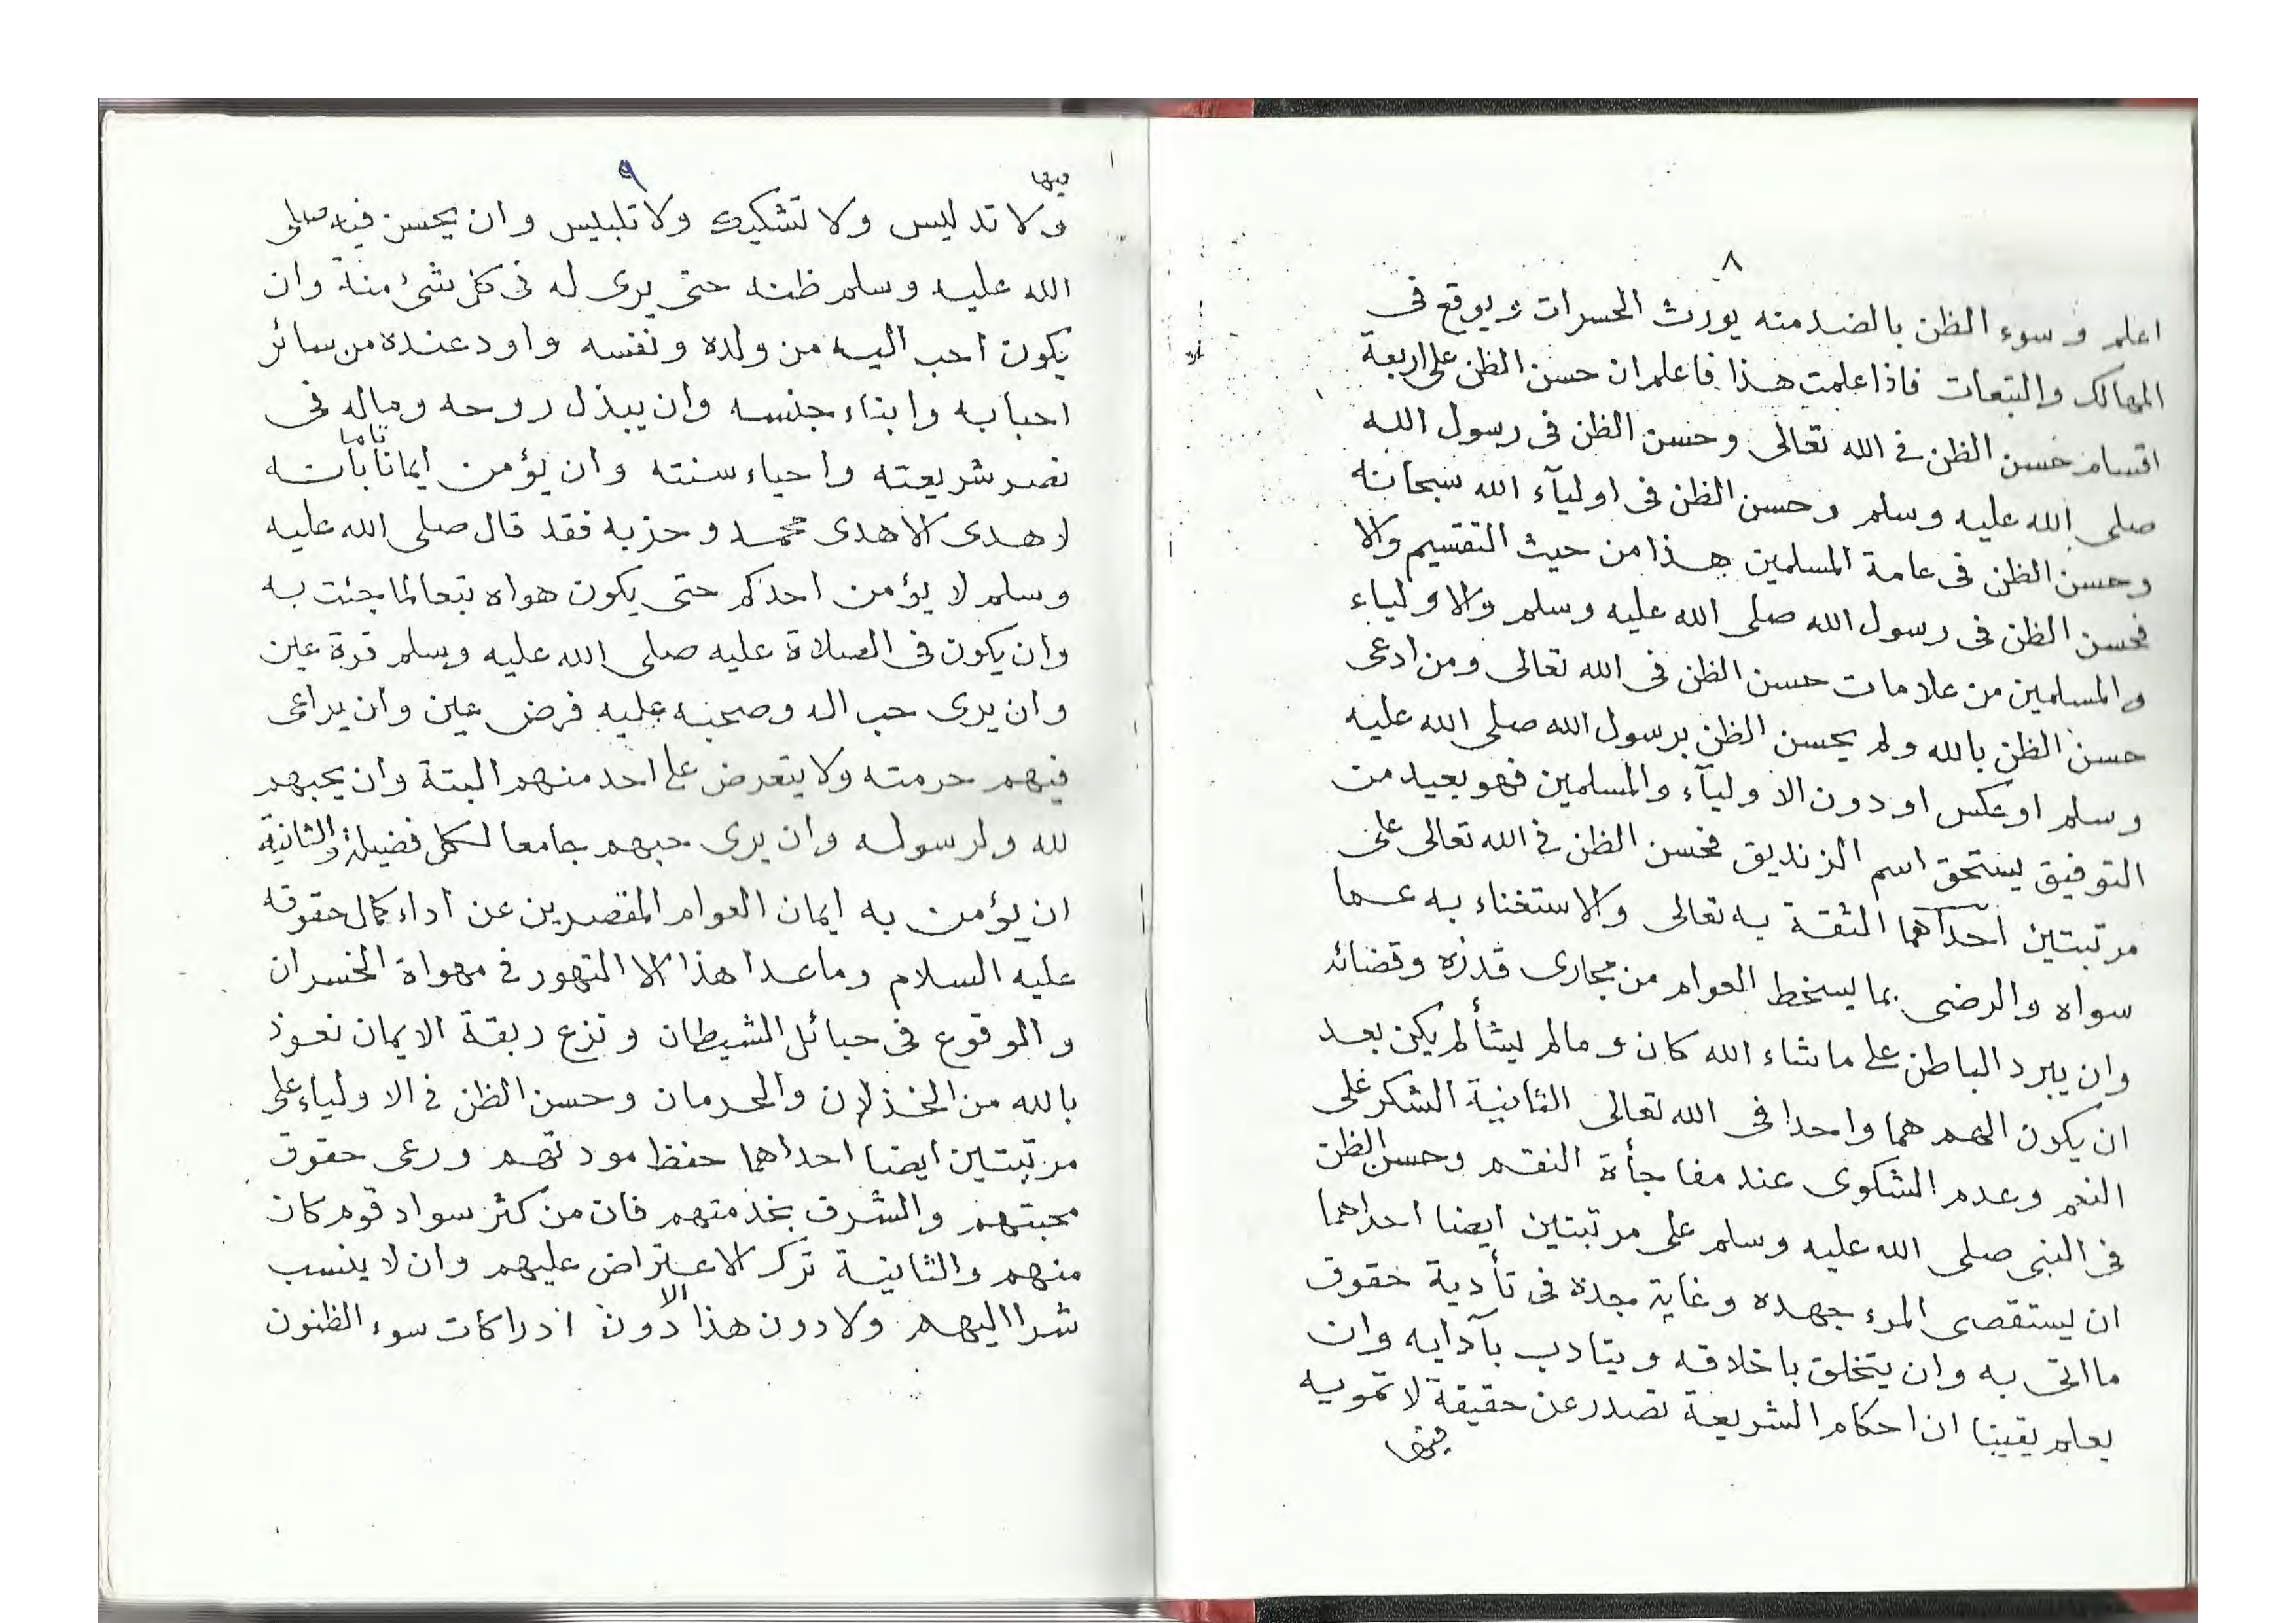 ٨
اعلم وسوء الظن بالضد منه يورث الحسرات ويوقع فى
المهالك والتبعات فاذا علمت هذا فاعلم ان حسن الظن على اربعة
اقسام حسن الظن فى الله تعالى وحسن الظن فى رسول الله
صلى الله عليه وسلم وحسن الظن فى اوليآء الله سبحانه
وحسن الظن فى عامة المسلمين هذا من حيث التقسيم والا
فحسن الظن فى رسول الله صلى الله عليه وسلم والاولياء
والمسلمين من علامات حسن الظن فى الله تعالى ومن ادعى
حسن الظن بالله ولم يحسن الظن برسول الله صلى الله عليه
وسلم او عكس او دون الاوليآء والمسلمين فهو بعيد من
التوفيق يستحق اسم الزنديق فحسن الظن فى الله تعالى على
مرتبتين احداهما الثقة به تعالى والاستغناء به عما
سواه والرضى بما يسخط العوام من مجارى قدره وقضائه
وان يبرد الباطن على ماشاء الله كان ومالم يشألم يكن بعد
ان يكون الهم هما واحدا فى الله تعالى الثانية الشكر على
النعم وعدم الشكوى عند مفاجأة النقم وحسن الظن
فى النبى صلى الله عليه وسلم على مرتبتين ايضا احداهما
ان يستقصى المرء جهده وغاية مجده فى تأدية حقوق
ما اتى به وان يتخلق باخلاقه ويتادب بآدابه وان
يعلم يقينا ان احكام الشريعة تصدر عن حقيقة لا تمويه
فيها
٩
فيها
ولا تدليس ولا تشكيك ولا تلبيس وان يحسن فيه صلى
الله عليه وسلم ظنه حتى يرى له فى كل شئ منة وان
يكون احب اليه من ولده ونفسه واود عنده من سائر
احبابه وابناء جنسه وان يبذل روحه وماله فى
نصر شريعته واحياء سنته وان يؤمن ايمانا تاما بانه
لا هدى الا هدى محمد وحزبه فقد قال صلى الله عليه
وسلم لا يؤمن احدكم حتى يكون هواه تبعا لما جئت به
وان يكون فى الصلاة عليه صلى الله عليه وسلم قرة عين
وان يرى حب اله وصحبه عليه فرض عين وان يراعى
فيهم حرمته ولا يتعرض على احد منهم البتة وان يحبهم
لله ولرسوله وان يرى حبهم جامعا لكل فضيلة والثانية
ان يؤمن به ايمان العوام المقصرين عن اداء كمال حقوقه
عليه السلام وما عدا هذا الا التهور فى مهواة الخسران
والوقوع فى حبائل الشيطان ونزع ربقة الايمان نعوذ
بالله من الخذلان والحرمان وحسن الظن فى الاولياء على
مرتبتين ايضا احداهما حفظ مودتهم ورعى حقوق
محبتهم والشرف بخدمتهم فان من كثر سواد قوم كان
منهم والثانية ترك الاعتراض عليهم وان لا ينسب
شرا اليهم ولا دون هذا الا دون ادراكات سوء الظنون